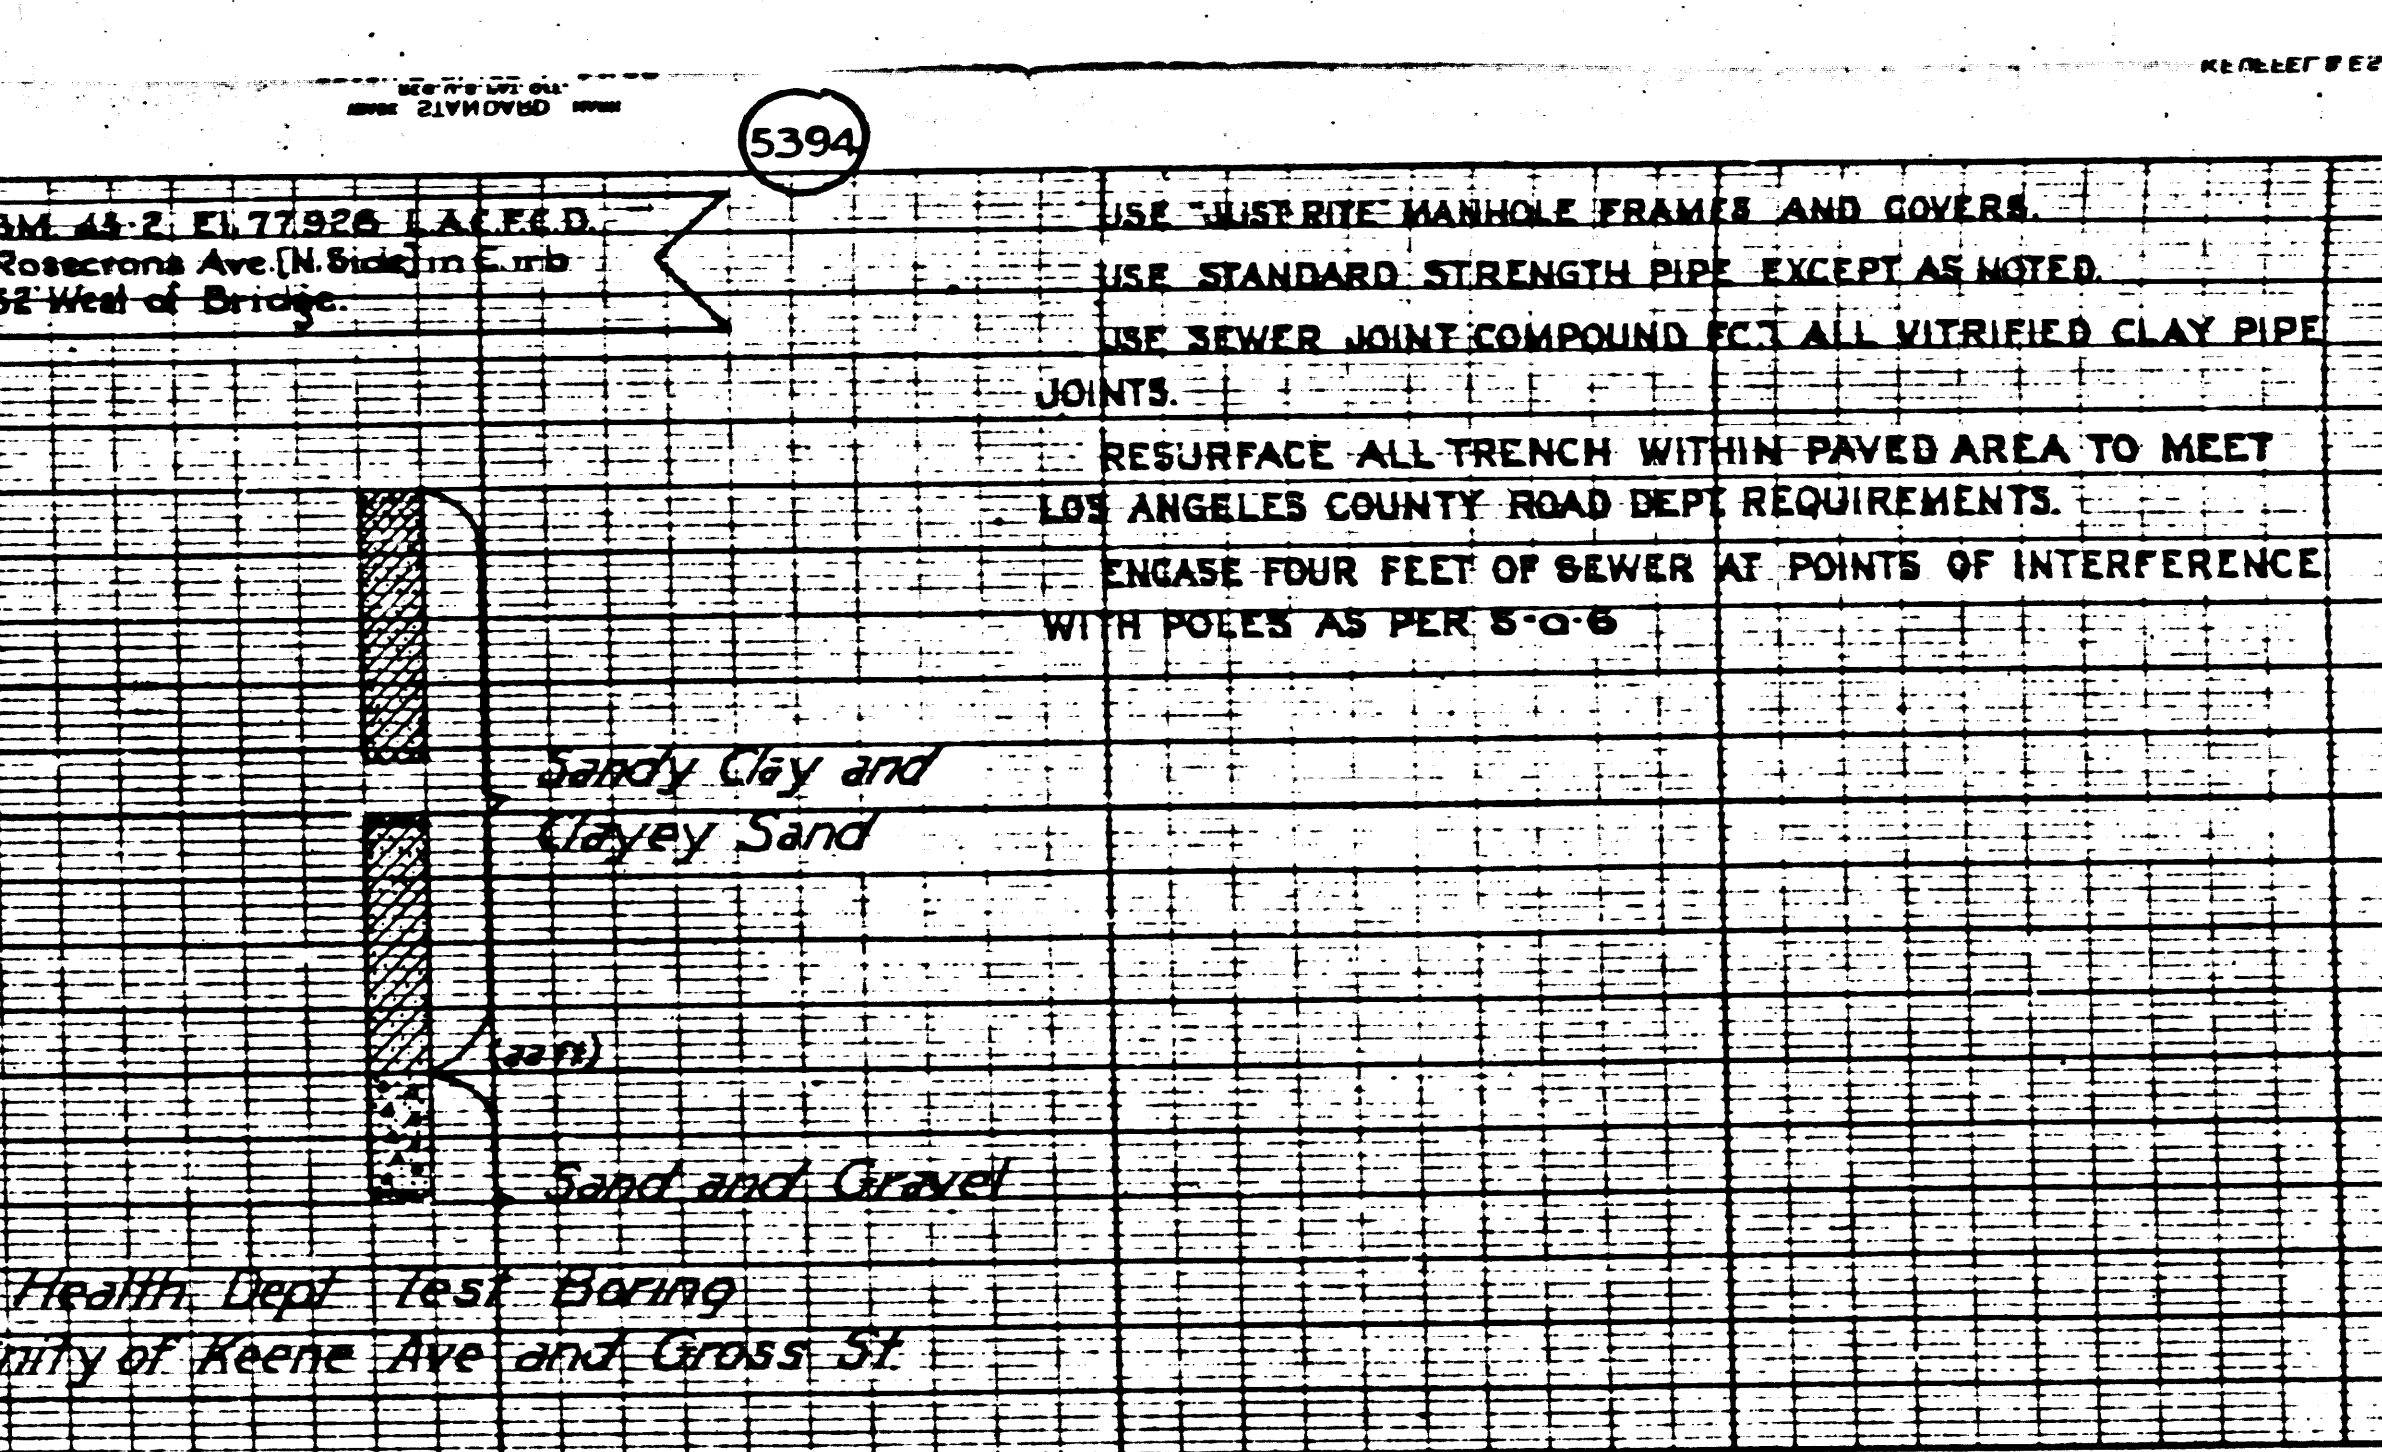 STANDARD
5394
Rosecrans Ave. [N. Side] in Curb
52' West of Bridge.
USE "JUST RITE" MANHOLE FRAMES AND COVERS.
USE STANDARD STRENGTH PIPE EXCEPT AS NOTED.
USE SEWER JOINT COMPOUND FOR ALL VITRIFIED CLAY PIPE
JOINTS.
RESURFACE ALL TRENCH WITHIN PAVED AREA TO MEET
LOS ANGELES COUNTY ROAD DEPT REQUIREMENTS.
ENCASE FOUR FEET OF SEWER AT POINTS OF INTERFERENCE
WITH POLES AS PER S-a-6
Sandy Clay and
Clayey Sand
(22 ft)
Sand and Gravel
Health Dept Test Boring
nity of Keene Ave and Gross St.